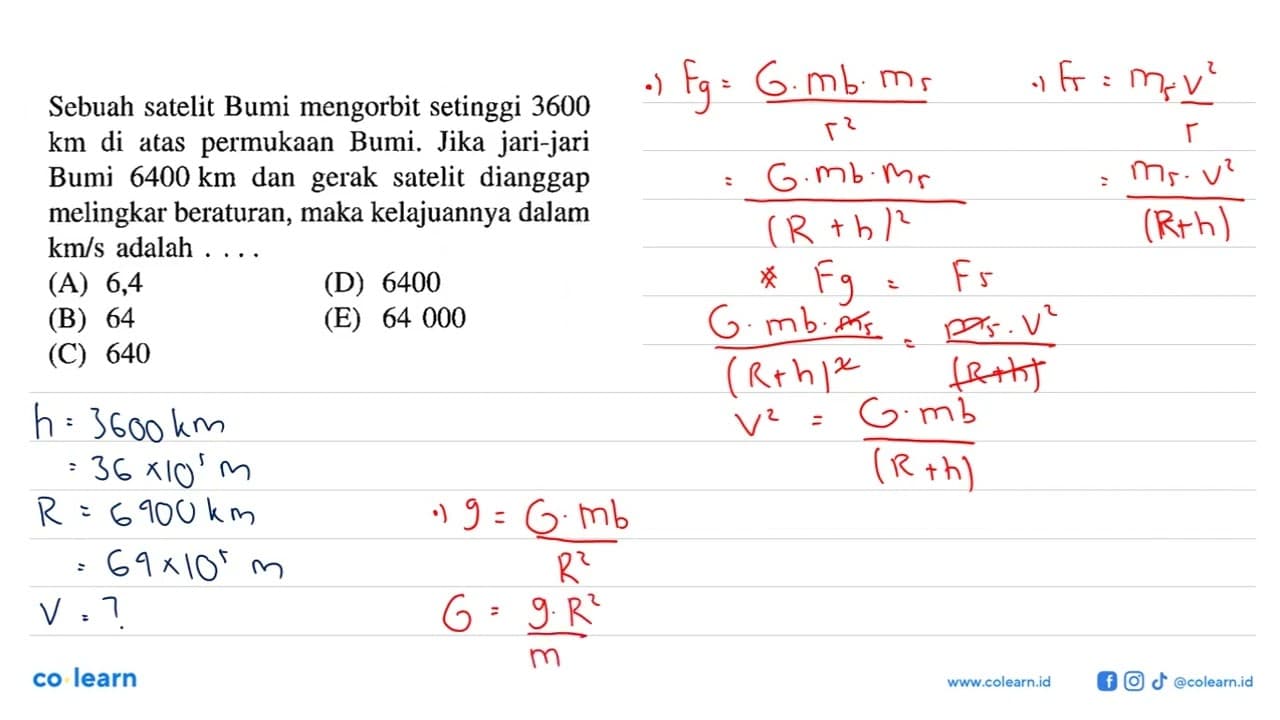 Sebuah satelit Bumi mengorbit setinggi 3600
km di atas permukaan Bumi. Jika jari-jari
Bumi 6400 km dan gerak satelit dianggap
melingkar beraturan, maka kelajuannya dalam
km/s adalah . . . .
(A) 6,4 (D) 6400
(B) 64 (E) 64 000
(C) 640
h = 3600 km
= 36 × 10⁵ m
R = 6400 km
= 64 × 10⁵ m
V = ?
•) g = G. mb / R²
G = g. R² / m
•) Fg = G. mb. ms / r²
= G. mb. ms / (R + h)²
•) Fs = ms v² / r
= ms. v² / (R+h)
* Fg = Fs
G. mb. ms / (R+h)² = ms. v² / (R+h)
v² = G. mb / (R + h)
co·learn
www.colearn.id
@colearn.id